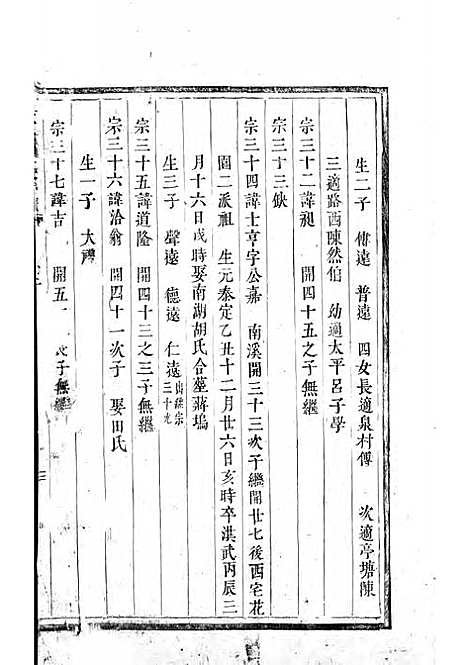 生二子 傅遠 普遠 四女長適泉村傅 次適亭塘陳
三適路西陳然伯 幼適太平呂子學
宗三十二諱昶 開四十五之子無繼
宗三十三缺
宗三十四諱士亨字公嘉 南溪開三十三次子繼開廿七後西宅花
園二派祖 生元泰定乙丑十二月廿六日亥時卒洪武丙辰三
月十六日戌時娶南湖胡氏合塟蔣塢
生三子 聲遠 德遠 仁遠 出繼宗三十九
宗三十五諱道隆 開四十三之三子無繼
宗三十六諱洽翁 開四十一次子 娶田氏
生一子 大禆
宗三十七諱吉 開五十 次子無繼